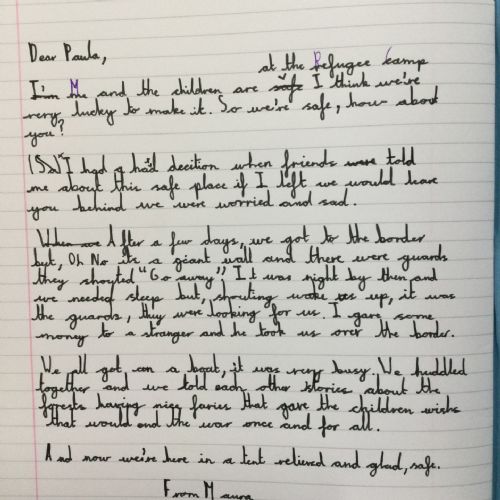 Dear Paula,
at the Refugee Camp
I'm Me and the children are safe I think we're
very lucky to make it. So we're safe, how about
you?
I had a hard decition when friends were told
me about this safe place if I left we would leave
you behind we were worried and sad.
When we After a few days, we got to the border
but, Oh No its a giant wall and there were guards
they shouted "Go away", It was night by then and
we needed sleep but, shouting woke us up, it was
the guards, they were looking for us. I gave some
money to a stranger and he took us over the border.
We all got on a boat, it was very busy. We huddled
together and we told each other stories about the
forests having nice faries that gave the children wishs
that would end the war once and for all.
And now we're here in a tent relieved and glad, safe.
From Maura